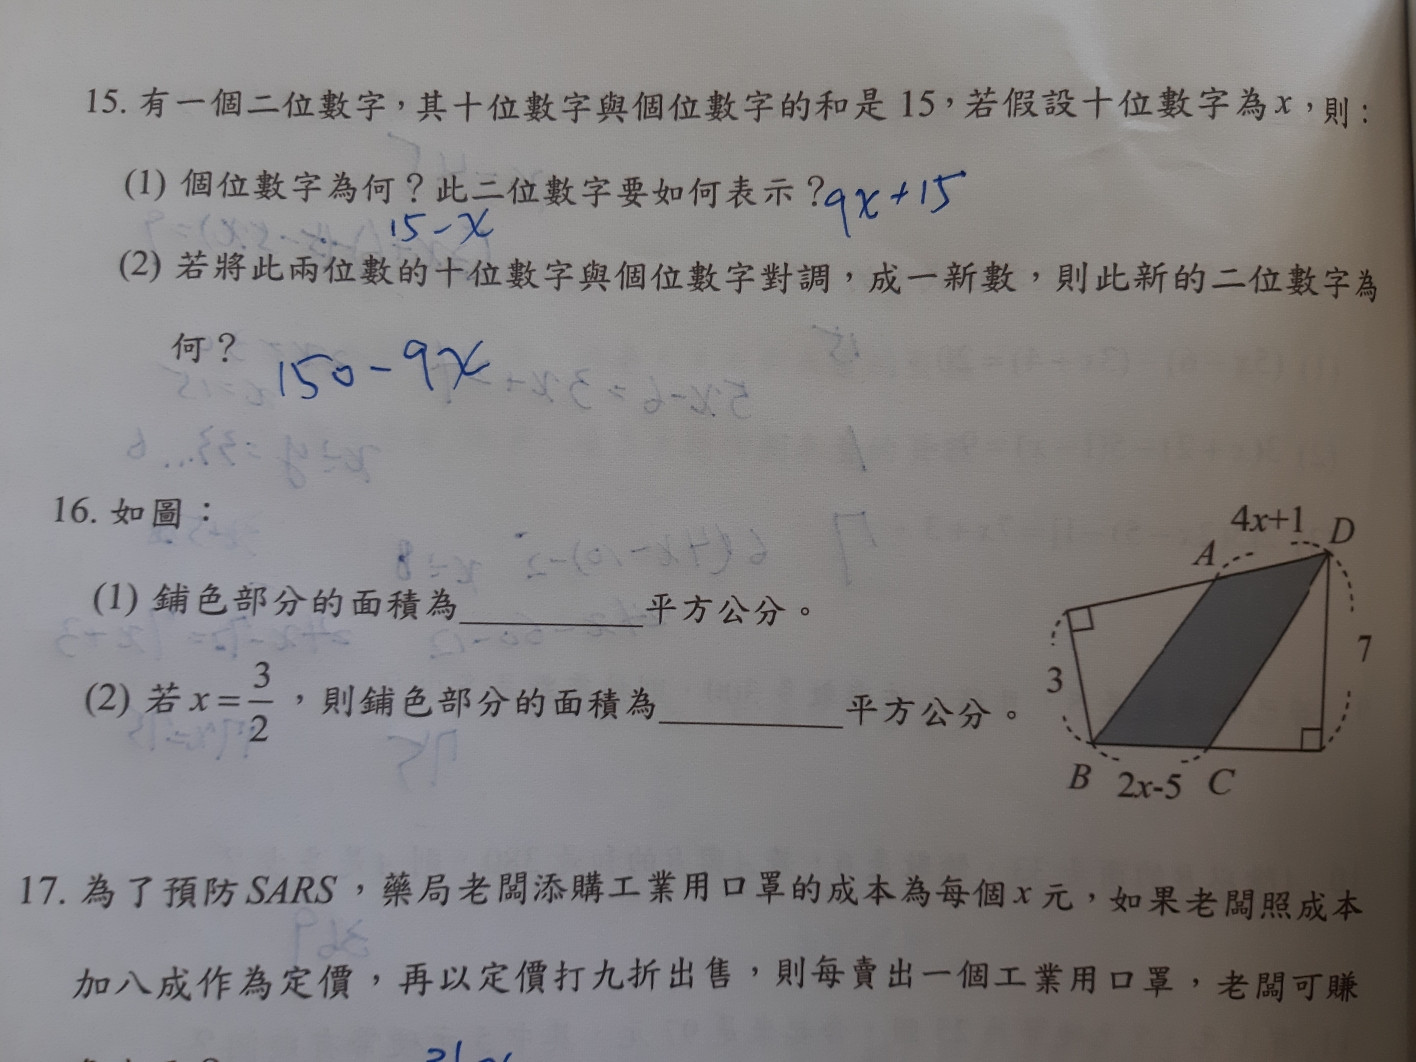 15. 有一個二位數字，其十位數字與個位數字的和是 15，若假設十位數字為 x，則：
(1) 個位數字為何？此二位數字要如何表示？9x+15
15-x
(2) 若將此兩位數的十位數字與個位數字對調，成一新數，則此新的二位數字為
何？ 150-9x
16. 如圖：
(1) 鋪色部分的面積為__________平方公分。
(2) 若 x=3/2，則鋪色部分的面積為__________平方公分。
4x+1
A
D
3
7
B 2x-5 C
17. 為了預防 SARS，藥局老闆添購工業用口罩的成本為每個 x 元，如果老闆照成本
加八成作為定價，再以定價打九折出售，則每賣出一個工業用口罩，老闆可賺